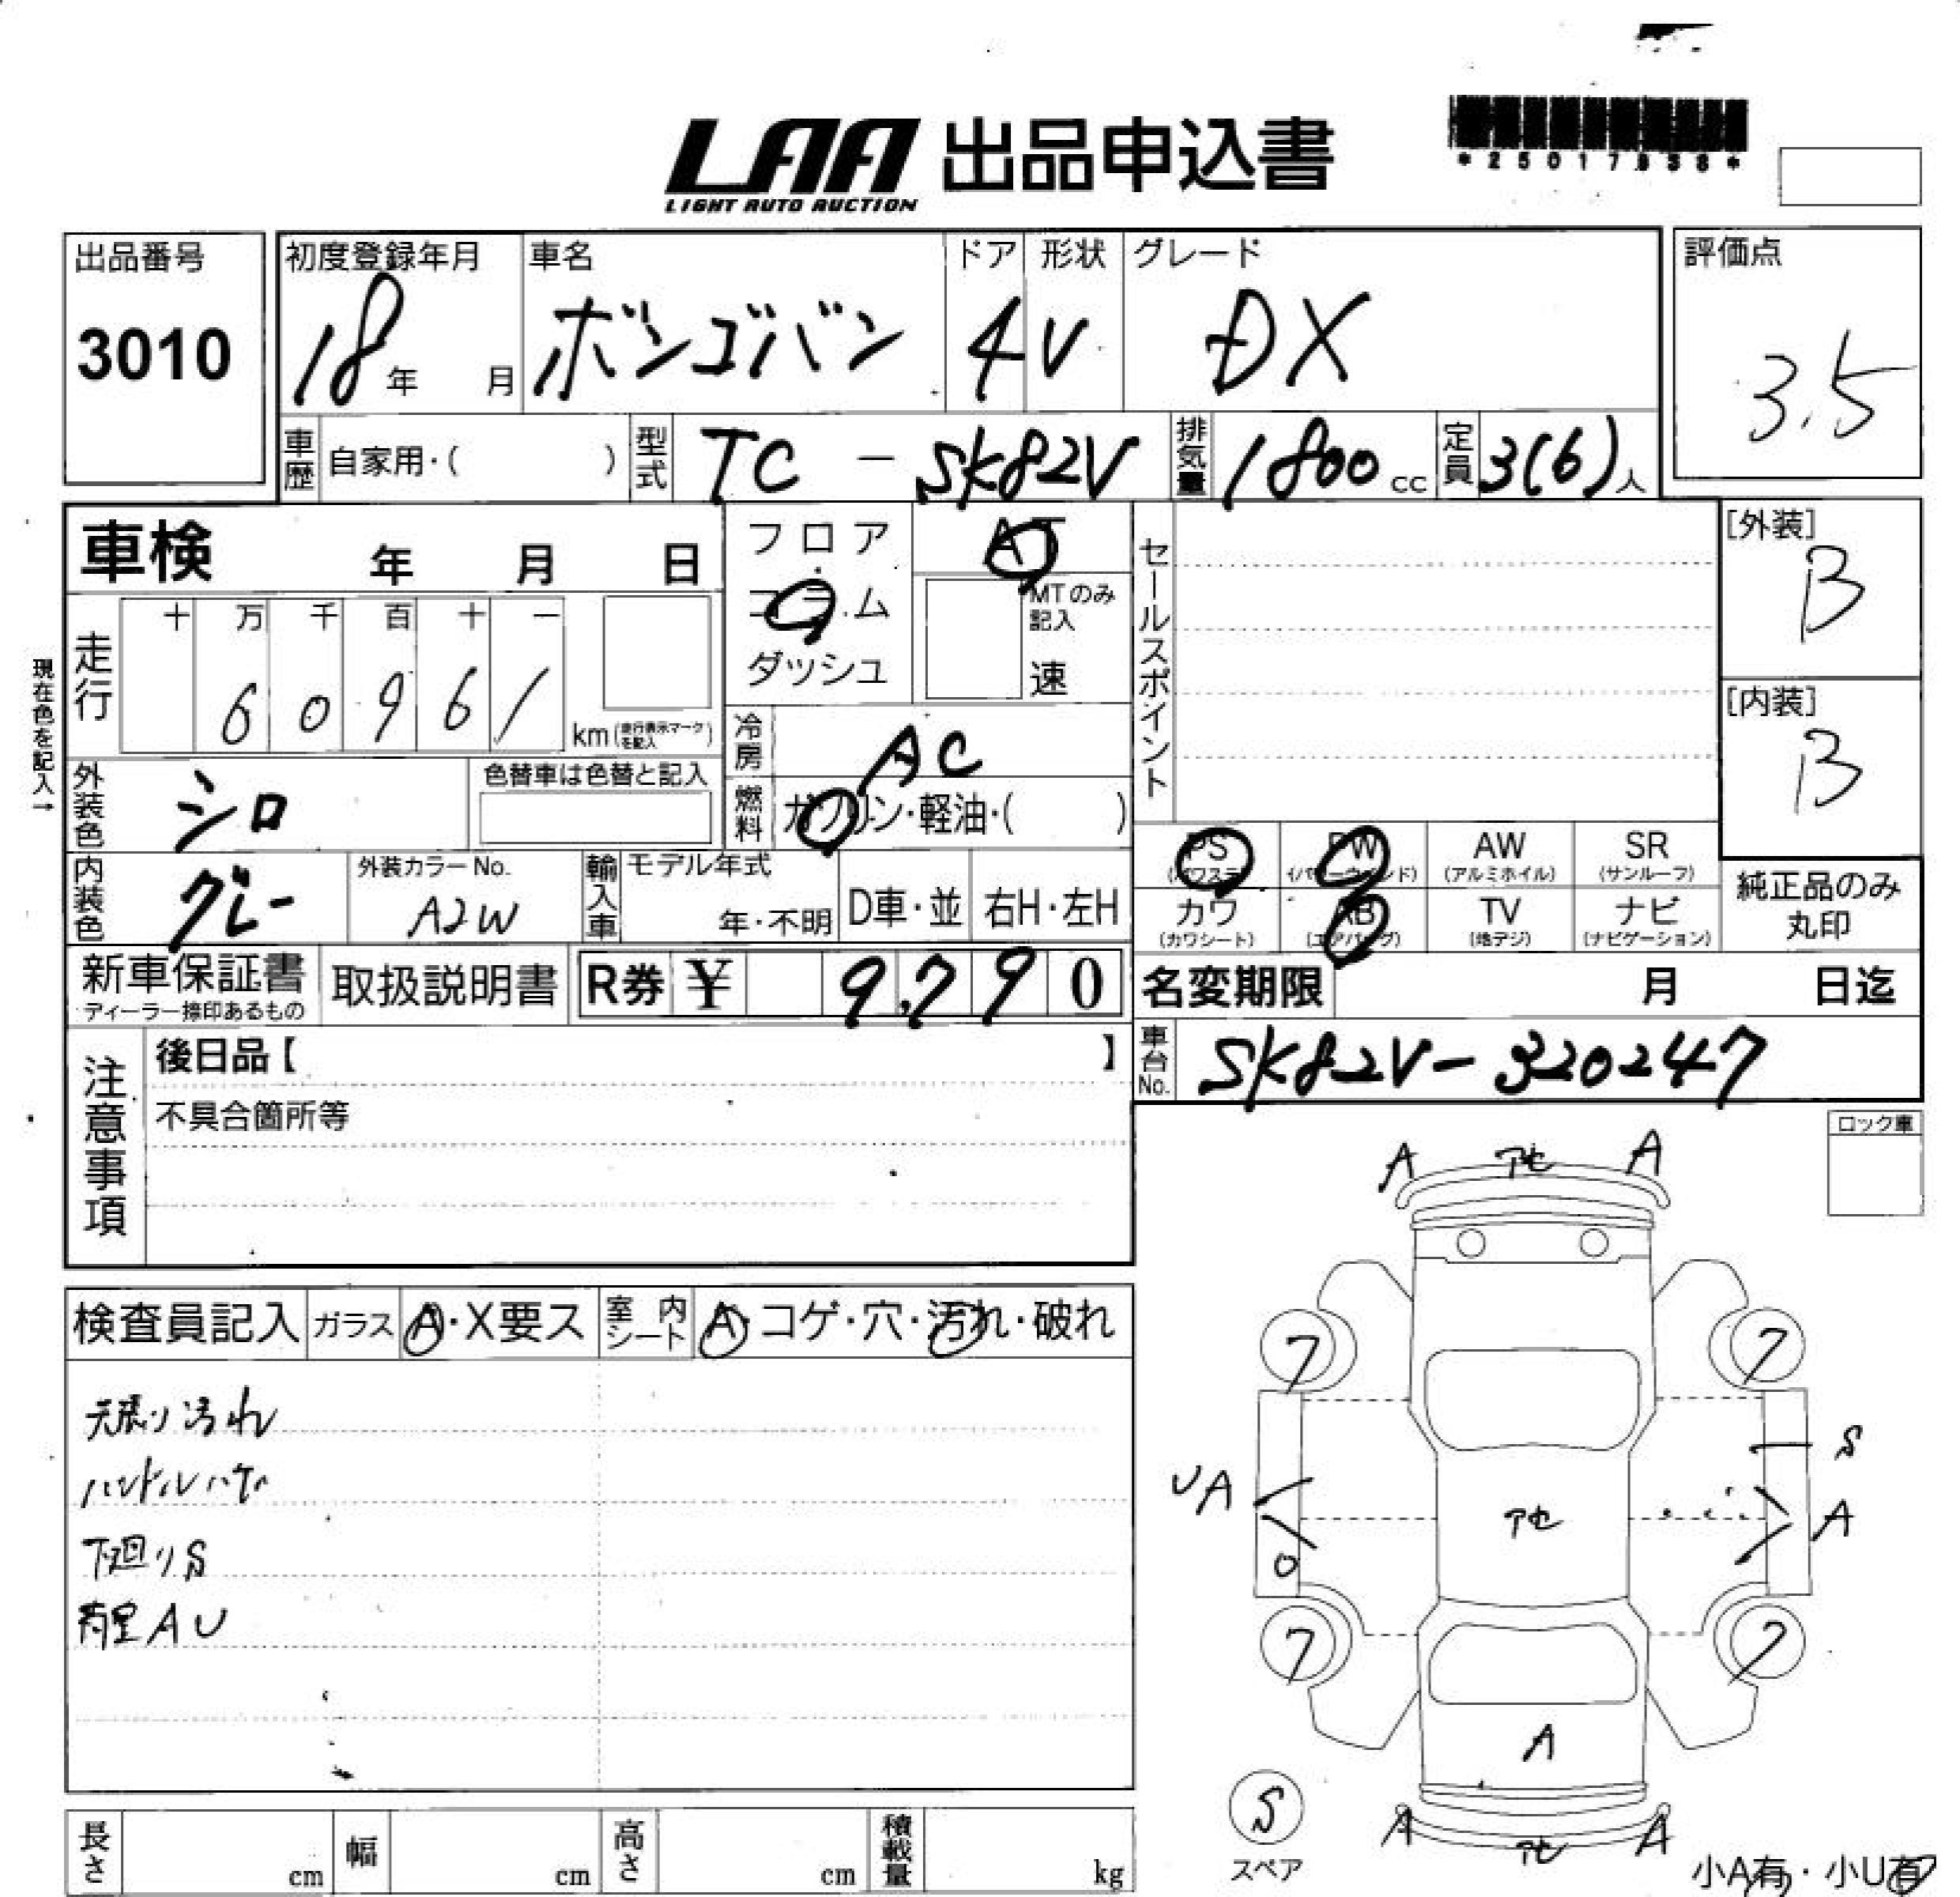 LAA 出品申込書
LIGHT AUTO AUCTION
出品番号
3010
初度登録年月
18年 月
車名
ボンゴバン
ドア
4
形状
V
グレード
DX
評価点
3.5
車歴 自家用・( )
型式 TC - SK82V
排気量 1800 cc
定員 3(6)人
車検 年 月 日
フロア
コラム
ダッシュ
AT
MTのみ記入
速
セールスポイント
[外装]
B
[内装]
B
現在色を記入→
走行
十 万 千 百 十 一
6 0 9 6 1
km(走行表示マークを記入)
冷房 AC
燃料 ガソリン・軽油・( )
外装色 シロ
色替車は色替と記入
内装色 グレー
外装カラーNo.
A2W
輸入車
モデル年式
年・不明
D車・並
右H・左H
PS
(パワステ)
PW
(パワーウインド)
AW
(アルミホイル)
SR
(サンルーフ)
カワ
(カワシート)
AB
(エアバッグ)
TV
(地デジ)
ナビ
(ナビゲーション)
純正品のみ
丸印
新車保証書
ディーラー捺印あるもの
取扱説明書
R券 ¥ 9,790
名変期限 月 日迄
車台No. SK82V-320247
注意事項
後日品【 】
不具合箇所等
ロック車
検査員記入 ガラス A・X要ス
室内シート A・コゲ・穴・汚れ・破れ
天張り汚れ
ハンドルハゲ
下廻りS
荷室AU
A アセ A
7 7
S
UA アセ A
7 7
A
S
スペア
A アセ A
小A有・小U有
長さ cm
幅 cm
高さ cm
積載量 kg